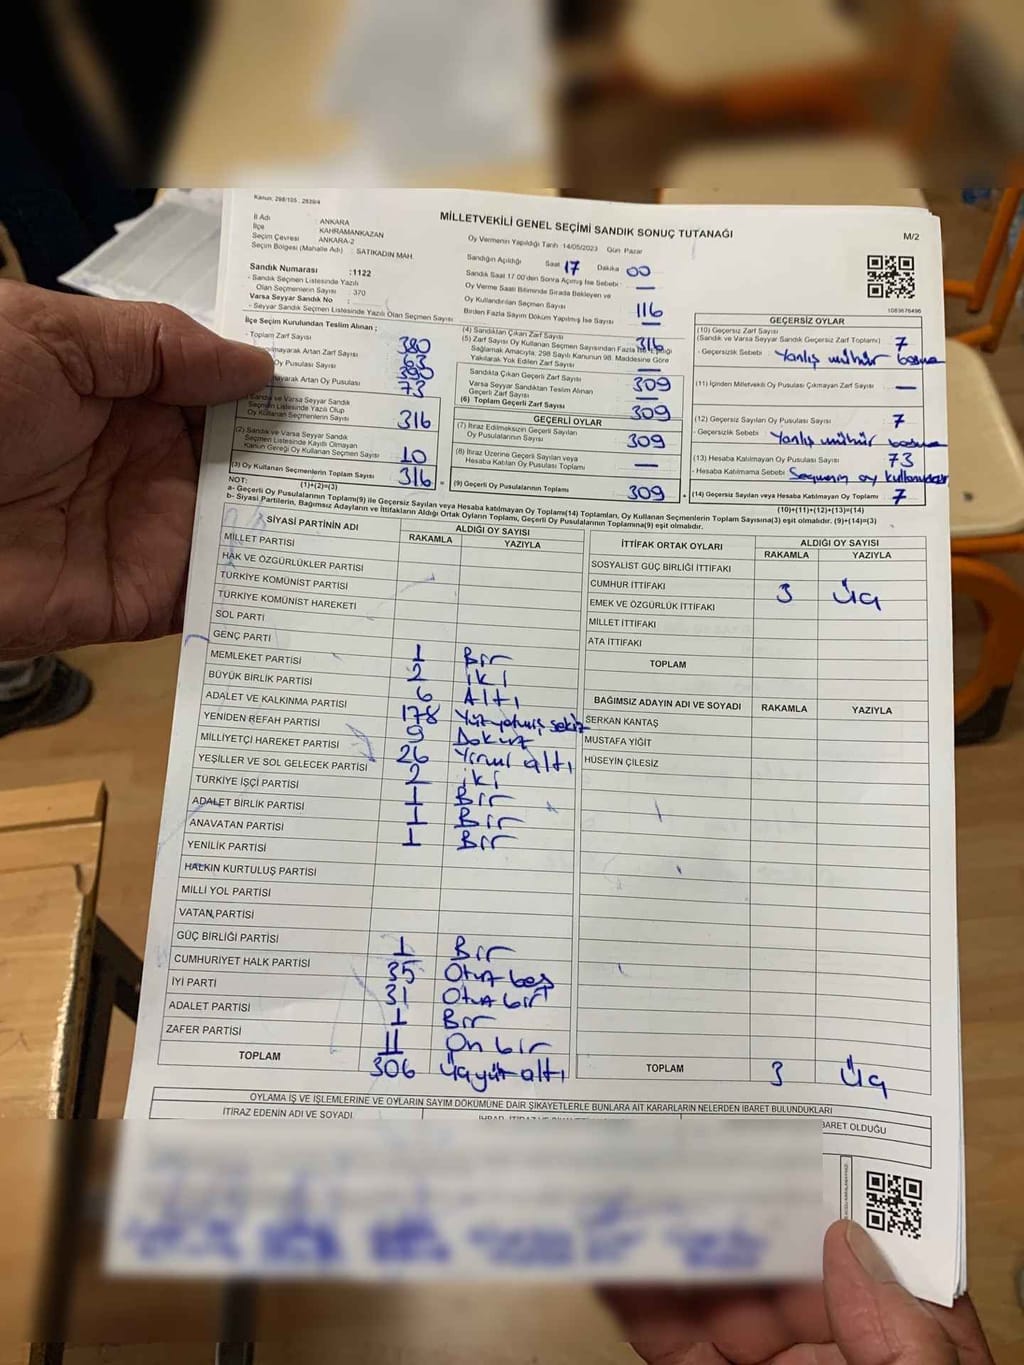 Kanun: 298/105 , 2839/4
MİLLETVEKİLİ GENEL SEÇİMİ SANDIK SONUÇ TUTANAĞI
M/2
İl Adı : ANKARA
İlçe : KAHRAMANKAZAN
Seçim Çevresi : ANKARA-2
Seçim Bölgesi (Mahalle Adı) : SATIKADIN MAH.
Oy Vermenin Yapıldığı Tarih :14/05/2023 Gün Pazar
Sandığın Açıldığı Saat 17 Dakika 00
Sandık Saat 17:00'den Sonra Açılmış İse Sebebi : —
Oy Verme Saati Bitiminde Sırada Bekleyen ve
Oy Kullandırılan Seçmen Sayısı 116
Birden Fazla Sayım Döküm Yapılmış İse Sayısı —
Sandık Numarası :1122
- Sandık Seçmen Listesinde Yazılı
Olan Seçmenlerin Sayısı : 370
Varsa Seyyar Sandık No :
- Seyyar Sandık Seçmen Listesinde Yazılı Olan Seçmen Sayısı
1083676496
İlçe Seçim Kurulundan Teslim Alınan ;
- Toplam Zarf Sayısı 380
Artan Zarf Sayısı 63
Oy Pusulası Sayısı
Artan Oy Pusulası 73
Sandık ve Varsa Seyyar Sandık
Seçmen Listesinde Yazılı Olup
Oy Kullanan Seçmenlerin Sayısı 316
(2) Sandık ve Varsa Seyyar Sandık
Seçmen Listesinde Kayıtlı Olmayan
Kanun Gereği Oy Kullanan Seçmen Sayısı 10
(3) Oy Kullanan Seçmenlerin Toplam Sayısı 316
(1)+(2)=(3)
(4) Sandıktan Çıkan Zarf Sayısı 316
(5) Zarf Sayısı Oy Kullanan Seçmen Sayısından Fazla İse Eşitliği
Sağlamak Amacıyla, 298 Sayılı Kanunun 98. Maddesine Göre
Yakılarak Yok Edilen Zarf Sayısı —
Sandıkta Çıkan Geçerli Zarf Sayısı 309
Varsa Seyyar Sandıktan Teslim Alınan
Geçerli Zarf Sayısı —
(6) Toplam Geçerli Zarf Sayısı 309
GEÇERLİ OYLAR
(7) İtiraz Edilmeksizin Geçerli Sayılan
Oy Pusulalarının Sayısı 309
(8) İtiraz Üzerine Geçerli Sayılan veya
Hesaba Katılan Oy Pusulası Toplamı —
(9) Geçerli Oy Pusulalarının Toplamı 309
GEÇERSİZ OYLAR
(10) Geçersiz Zarf Sayısı
(Sandık ve Varsa Seyyar Sandık Geçersiz Zarf Toplamı) 7
- Geçersizlik Sebebi : Yanlış mühür basma
(11) İçinden Milletvekili Oy Pusulası Çıkmayan Zarf Sayısı —
(12) Geçersiz Sayılan Oy Pusulası Sayısı 7
- Geçersizlik Sebebi : Yanlış mühür basma
(13) Hesaba Katılmayan Oy Pusulası Sayısı 73
- Hesaba Katılmama Sebebi Seçmenin oy kullanmaması
(14) Geçersiz Sayılan veya Hesaba Katılmayan Oy Toplamı 7
(10)+(11)+(12)+(13)=(14)
NOT:
a- Geçerli Oy Pusulalarının Toplamı(9) ile Geçersiz Sayılan veya Hesaba katılmayan Oy Toplamı(14) Toplamları, Oy Kullanan Seçmenlerin Toplam Sayısına(3) eşit olmalıdır. (9)+(14)=(3)
b- Siyasi Partilerin, Bağımsız Adayların ve İttifakların Aldığı Ortak Oyların Toplamı, Geçerli Oy Pusulalarının Toplamına(9) eşit olmalıdır.
SİYASİ PARTİNİN ADI ALDIĞI OY SAYISI
RAKAMLA YAZIYLA
MİLLET PARTİSİ
HAK VE ÖZGÜRLÜKLER PARTİSİ
TÜRKİYE KOMÜNİST PARTİSİ
TÜRKİYE KOMÜNİST HAREKETİ
SOL PARTİ
GENÇ PARTİ
MEMLEKET PARTİSİ 1 Bir
BÜYÜK BİRLİK PARTİSİ 2 iki
ADALET VE KALKINMA PARTİSİ 6 Altı
YENİDEN REFAH PARTİSİ 178 Yüzyetmiş sekiz
MİLLİYETÇİ HAREKET PARTİSİ 9 Dokuz
YEŞİLLER VE SOL GELECEK PARTİSİ 26 Yirmi altı
TÜRKİYE İŞÇİ PARTİSİ 2 iki
ADALET BİRLİK PARTİSİ 1 Bir
ANAVATAN PARTİSİ 1 Bir
YENİLİK PARTİSİ 1 Bir
HALKIN KURTULUŞ PARTİSİ
MİLLİ YOL PARTİSİ
VATAN PARTİSİ
GÜÇ BİRLİĞİ PARTİSİ 1 Bir
CUMHURİYET HALK PARTİSİ 35 Otuz beş
İYİ PARTİ 31 Otuz bir
ADALET PARTİSİ 1 Bir
ZAFER PARTİSİ 11 On bir
TOPLAM 306 Üçyüz altı
İTTİFAK ORTAK OYLARI ALDIĞI OY SAYISI
RAKAMLA YAZIYLA
SOSYALİST GÜÇ BİRLİĞİ İTTİFAKI
CUMHUR İTTİFAKI 3 Üç
EMEK VE ÖZGÜRLÜK İTTİFAKI
MİLLET İTTİFAKI
ATA İTTİFAKI
TOPLAM
BAĞIMSIZ ADAYIN ADI VE SOYADI RAKAMLA YAZIYLA
SERKAN KANTAŞ
MUSTAFA YİĞİT
HÜSEYİN ÇİLESİZ
TOPLAM 3 Üç
OYLAMA İŞ VE İŞLEMLERİNE VE OYLARIN SAYIM DÖKÜMÜNE DAİR ŞİKAYETLERLE BUNLARA AİT KARARLARIN NELERDEN İBARET BULUNDUKLARI
İTİRAZ EDENİN ADI VE SOYADI
İBARET OLDUĞU